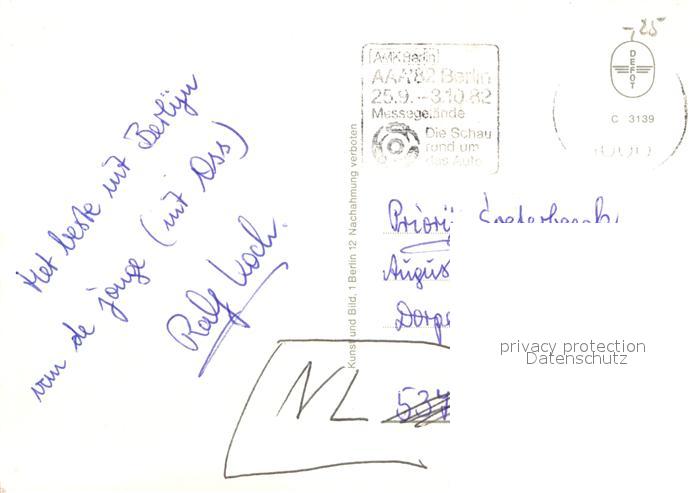 Het beste uit Berlijn
van de jonge (uit Oss)
Ralf Koch.
Kunst und Bild, 1 Berlin 12 Nachahmung verboten
AMK Berlin
AAA'82 Berlin
25.9.–3.10.82
Messegelände
Die Schau
rund um
das Auto
-,25
DEFOT
C 3139
Priorij
Augus
Dorps
NL
privacy protection
Datenschutz